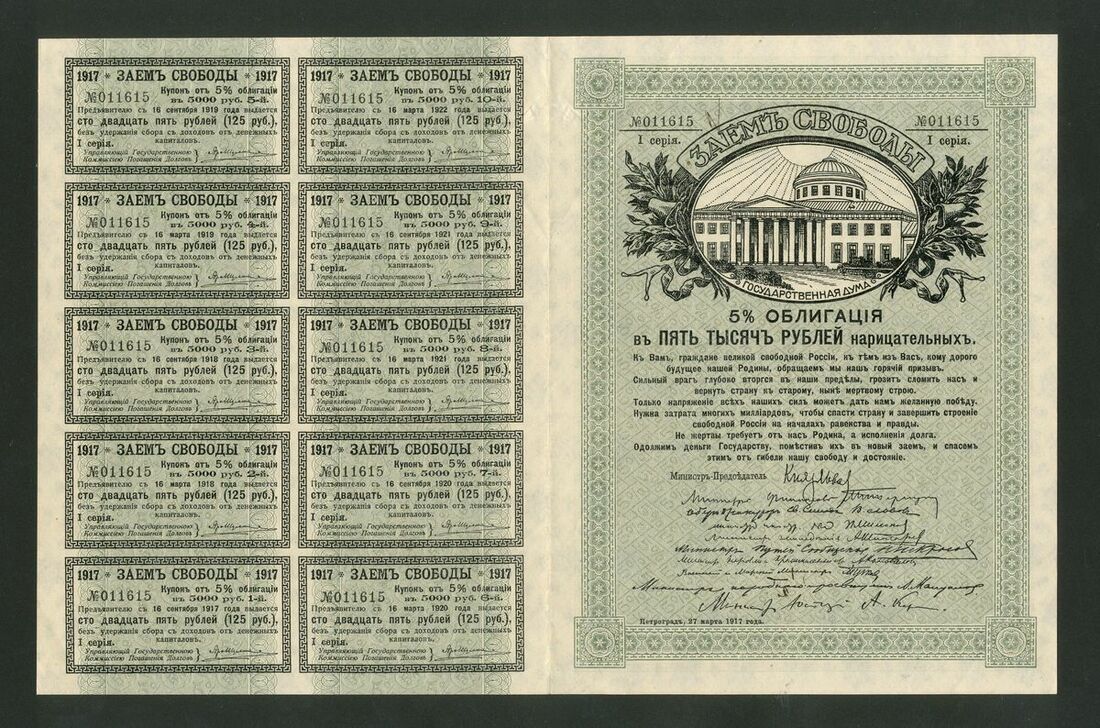 1917 * ЗАЕМЪ СВОБОДЫ * 1917
№011615 Купонъ отъ 5% облигации
въ 5000 руб. 5-й.
Предъявителю съ 16 сентября 1919 года выдается
сто двадцать пять рублей (125 руб.),
безъ удержания сбора съ доходовъ отъ денежныхъ
капиталовъ.
I серія.
Управляющій Государственною
Коммиссіею Погашенія Долговъ
1917 * ЗАЕМЪ СВОБОДЫ * 1917
№011615 Купонъ отъ 5% облигации
въ 5000 руб. 10-й.
Предъявителю съ 16 марта 1922 года выдается
сто двадцать пять рублей (125 руб.),
безъ удержания сбора съ доходовъ отъ денежныхъ
капиталовъ.
I серія.
Управляющій Государственною
Коммиссіею Погашенія Долговъ
1917 * ЗАЕМЪ СВОБОДЫ * 1917
№011615 Купонъ отъ 5% облигации
въ 5000 руб. 4-й.
Предъявителю съ 16 марта 1919 года выдается
сто двадцать пять рублей (125 руб.),
безъ удержания сбора съ доходовъ отъ денежныхъ
капиталовъ.
I серія.
Управляющій Государственною
Коммиссіею Погашенія Долговъ
1917 * ЗАЕМЪ СВОБОДЫ * 1917
№011615 Купонъ отъ 5% облигации
въ 5000 руб. 9-й.
Предъявителю съ 16 сентября 1921 года выдается
сто двадцать пять рублей (125 руб.),
безъ удержания сбора съ доходовъ отъ денежныхъ
капиталовъ.
I серія.
Управляющій Государственною
Коммиссіею Погашенія Долговъ
1917 * ЗАЕМЪ СВОБОДЫ * 1917
№011615 Купонъ отъ 5% облигации
въ 5000 руб. 3-й.
Предъявителю съ 16 сентября 1918 года выдается
сто двадцать пять рублей (125 руб.),
безъ удержания сбора съ доходовъ отъ денежныхъ
капиталовъ.
I серія.
Управляющій Государственною
Коммиссіею Погашенія Долговъ
1917 * ЗАЕМЪ СВОБОДЫ * 1917
№011615 Купонъ отъ 5% облигации
въ 5000 руб. 8-й.
Предъявителю съ 16 марта 1921 года выдается
сто двадцать пять рублей (125 руб.),
безъ удержания сбора съ доходовъ отъ денежныхъ
капиталовъ.
I серія.
Управляющій Государственною
Коммиссіею Погашенія Долговъ
1917 * ЗАЕМЪ СВОБОДЫ * 1917
№011615 Купонъ отъ 5% облигации
въ 5000 руб. 2-й.
Предъявителю съ 16 марта 1918 года выдается
сто двадцать пять рублей (125 руб.),
безъ удержания сбора съ доходовъ отъ денежныхъ
капиталовъ.
I серія.
Управляющій Государственною
Коммиссіею Погашенія Долговъ
1917 * ЗАЕМЪ СВОБОДЫ * 1917
№011615 Купонъ отъ 5% облигации
въ 5000 руб. 7-й.
Предъявителю съ 16 сентября 1920 года выдается
сто двадцать пять рублей (125 руб.),
безъ удержания сбора съ доходовъ отъ денежныхъ
капиталовъ.
I серія.
Управляющій Государственною
Коммиссіею Погашенія Долговъ
1917 * ЗАЕМЪ СВОБОДЫ * 1917
№011615 Купонъ отъ 5% облигации
въ 5000 руб. 1-й.
Предъявителю съ 16 сентября 1917 года выдается
сто двадцать пять рублей (125 руб.),
безъ удержания сбора съ доходовъ отъ денежныхъ
капиталовъ.
I серія.
Управляющій Государственною
Коммиссіею Погашенія Долговъ
1917 * ЗАЕМЪ СВОБОДЫ * 1917
№011615 Купонъ отъ 5% облигации
въ 5000 руб. 6-й.
Предъявителю съ 16 марта 1920 года выдается
сто двадцать пять рублей (125 руб.),
безъ удержания сбора съ доходовъ отъ денежныхъ
капиталовъ.
I серія.
Управляющій Государственною
Коммиссіею Погашенія Долговъ
№011615 №011615
I серія. I серія.
ЗАЕМЪ СВОБОДЫ
ГОСУДАРСТВЕННАЯ ДУМА
5% ОБЛИГАЦІЯ
въ ПЯТЬ ТЫСЯЧЪ РУБЛЕЙ нарицательныхъ.
Къ Вамъ, граждане великой свободной Россіи, къ тѣмъ изъ Васъ, кому дорого
будущее нашей Родины, обращаемъ мы нашъ горячій призывъ.
Сильный врагъ глубоко вторгся въ наши предѣлы, грозитъ сломить насъ и
вернуть страну къ старому, нынѣ мертвому строю.
Только напряженіе всѣхъ нашихъ силъ можетъ дать намъ желанную побѣду.
Нужна затрата многихъ милліардовъ, чтобы спасти страну и завершить строеніе
свободной Россіи на началахъ равенства и правды.
Не жертвы требуетъ отъ насъ Родина, а исполненія долга.
Одолжимъ деньги Государству, помѣстивъ ихъ въ новый заемъ, и спасемъ
этимъ отъ гибели нашу свободу и достояніе.
Министръ-Предсѣдатель Кн. Львовъ
Министръ финансовъ
Оберъ-Прокуроръ Св. Синода В. Львовъ
Министръ земледѣлія А. Шингаревъ
Министръ Путей Сообщенія Н. Некрасов
Министръ Юстиціи А. Кер
Петроградъ, 27 марта 1917 года.